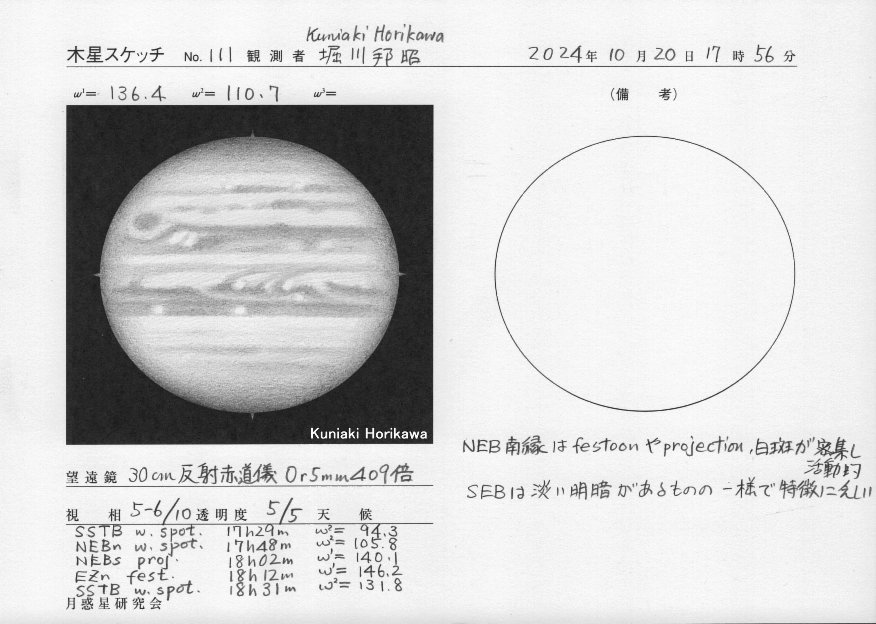 Kuniaki Horikawa
木星スケッチ No. 111 観測者 堀川邦昭 2024年 10月 20日 17時 56分
ω¹= 136.4 ω²= 110.7 ω³=
(備 考)
Kuniaki Horikawa
NEB南縁はfestoonやprojection,白斑が密集し
活動的
SEBは淡い明暗があるものの一様で特徴に乏しい
望遠鏡 30cm反射赤道儀 Or5mm 409倍
視 相 5-6/10 透明度 5/5 天 候
SSTB w. spot. 17h29m ω²= 94.3
NEBn w. spot. 17h48m ω²= 105.8
NEBs proj. 18h02m ω¹= 140.1
EZn fest. 18h12m ω¹= 146.2
SSTB w. spot. 18h31m ω²= 131.8
月惑星研究会